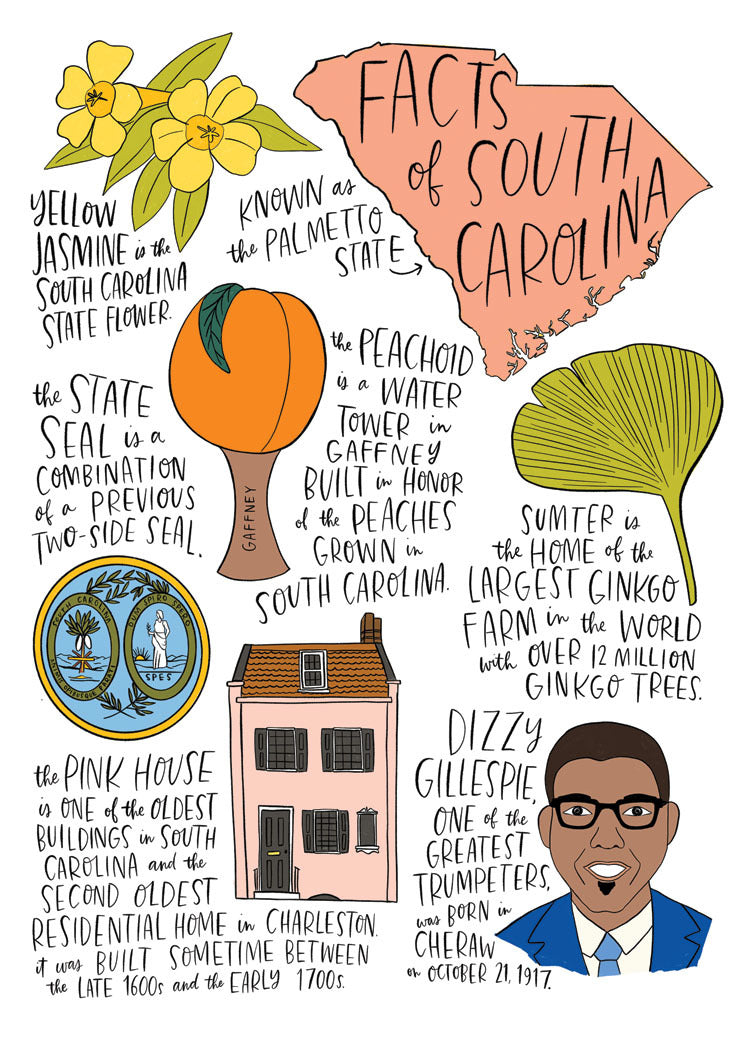 FACTS
of SOUTH
CAROLINA
KNOWN as
the PALMETTO
STATE
YELLOW
JASMINE is the
SOUTH CAROLINA
STATE FLOWER.
the PEACHOID
is a WATER
TOWER in
GAFFNEY
BUILT in HONOR
of the PEACHES
GROWN in
SOUTH CAROLINA.
GAFFNEY
the STATE
SEAL is a
COMBINATION
of a PREVIOUS
TWO-SIDE SEAL.
SOUTH CAROLINA
ANIMIS OPIBUSQUE PARATI
DUM SPIRO SPERO
SPES
SUMTER is
the HOME of the
LARGEST GINKGO
FARM in the WORLD
with OVER 12 MILLION
GINKGO TREES.
the PINK HOUSE
is ONE of the OLDEST
BUILDINGS in SOUTH
CAROLINA and the
SECOND OLDEST
RESIDENTIAL HOME in CHARLESTON.
it was BUILT SOMETIME BETWEEN
the LATE 1600s and the EARLY 1700s.
DIZZY
GILLESPIE,
ONE of the
GREATEST
TRUMPETERS,
was BORN in
CHERAW
on OCTOBER 21, 1917.